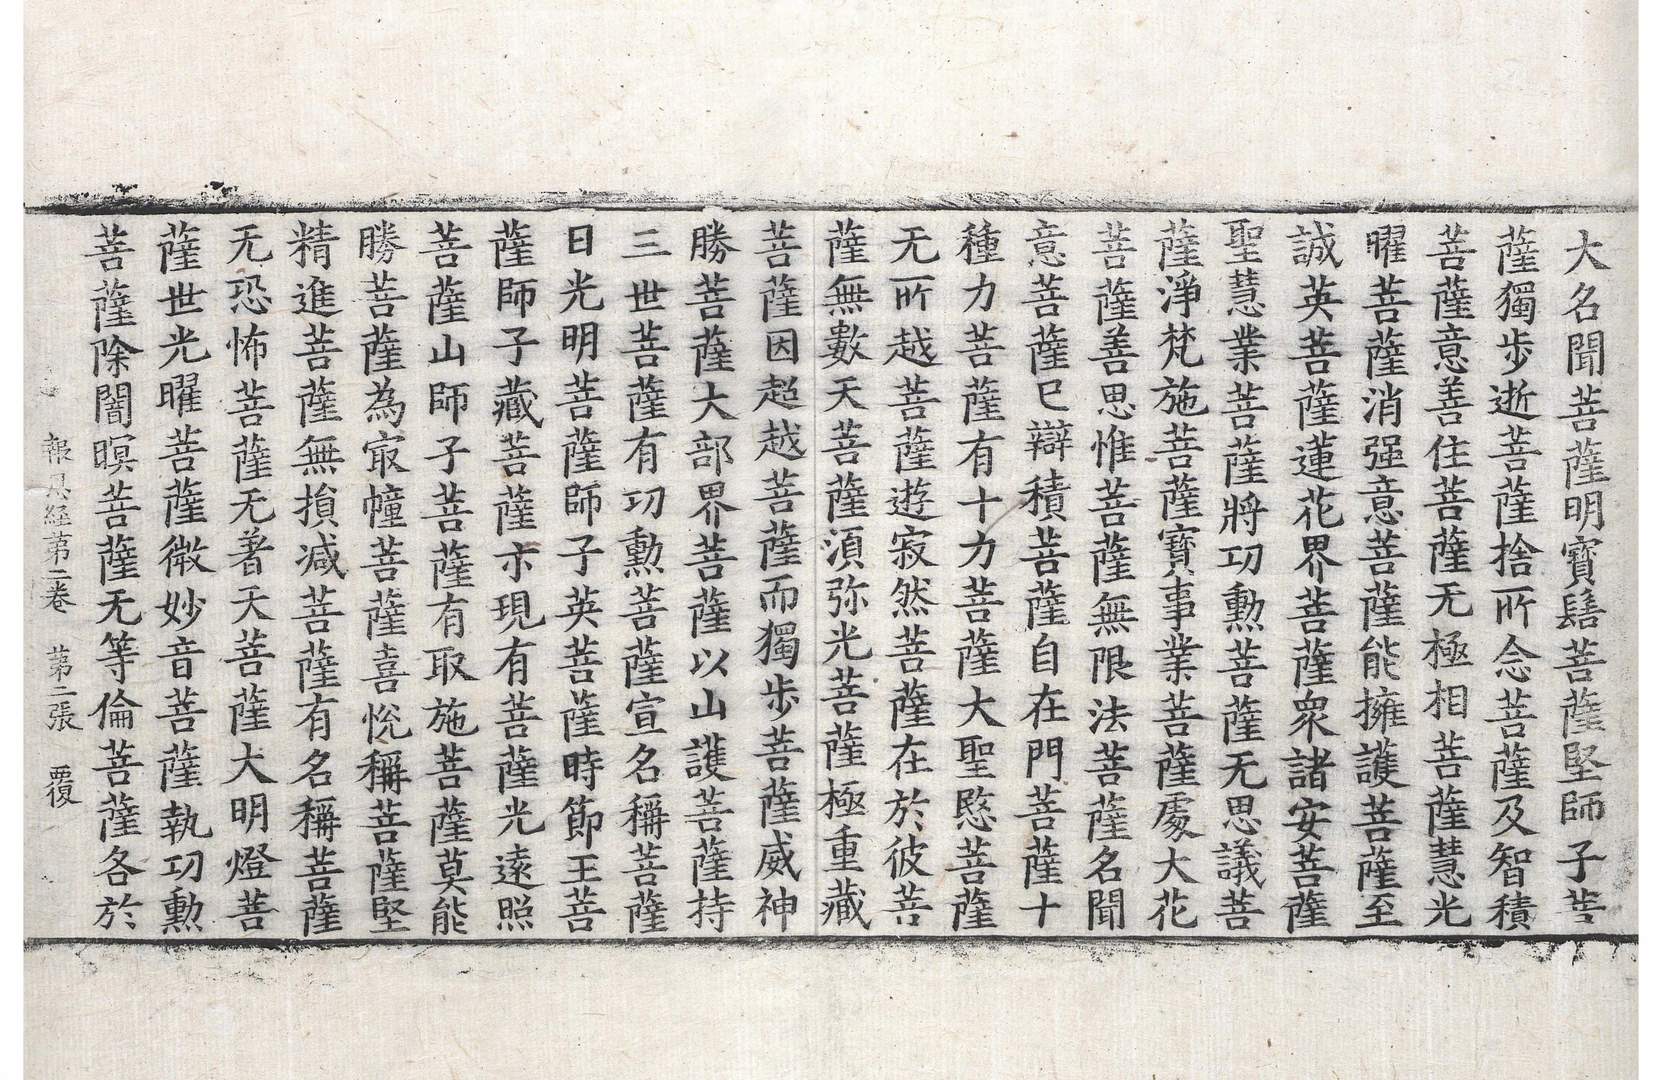 大名聞菩薩明寶髻菩薩堅師子菩
薩獨步逝菩薩捨所念菩薩及智積
菩薩意善住菩薩无極相菩薩慧光
曜菩薩消强意菩薩能擁護菩薩至
誠英菩薩蓮花界菩薩眾諸安菩薩
聖慧業菩薩將功勳菩薩无思議菩
薩淨梵施菩薩寶事業菩薩處大花
菩薩善思惟菩薩無限法菩薩名聞
意菩薩已辯積菩薩自在門菩薩十
種力菩薩有十力菩薩大聖愍菩薩
无所越菩薩遊寂然菩薩在於彼菩
薩無數天菩薩須弥光菩薩極重藏
菩薩因超越菩薩而獨步菩薩威神
勝菩薩大部界菩薩以山護菩薩持
三世菩薩有功勳菩薩宣名稱菩薩
日光明菩薩師子英菩薩時節王菩
薩師子藏菩薩示現有菩薩光遠照
菩薩山師子菩薩有取施菩薩莫能
勝菩薩為冣幢菩薩喜悅稱菩薩堅
精進菩薩無損减菩薩有名稱菩薩
无恐怖菩薩无著天菩薩大明燈菩
薩世光曜菩薩微妙音菩薩執功勳
菩薩除闇暝菩薩无等倫菩薩各於
報具経第二卷 第二張 覆